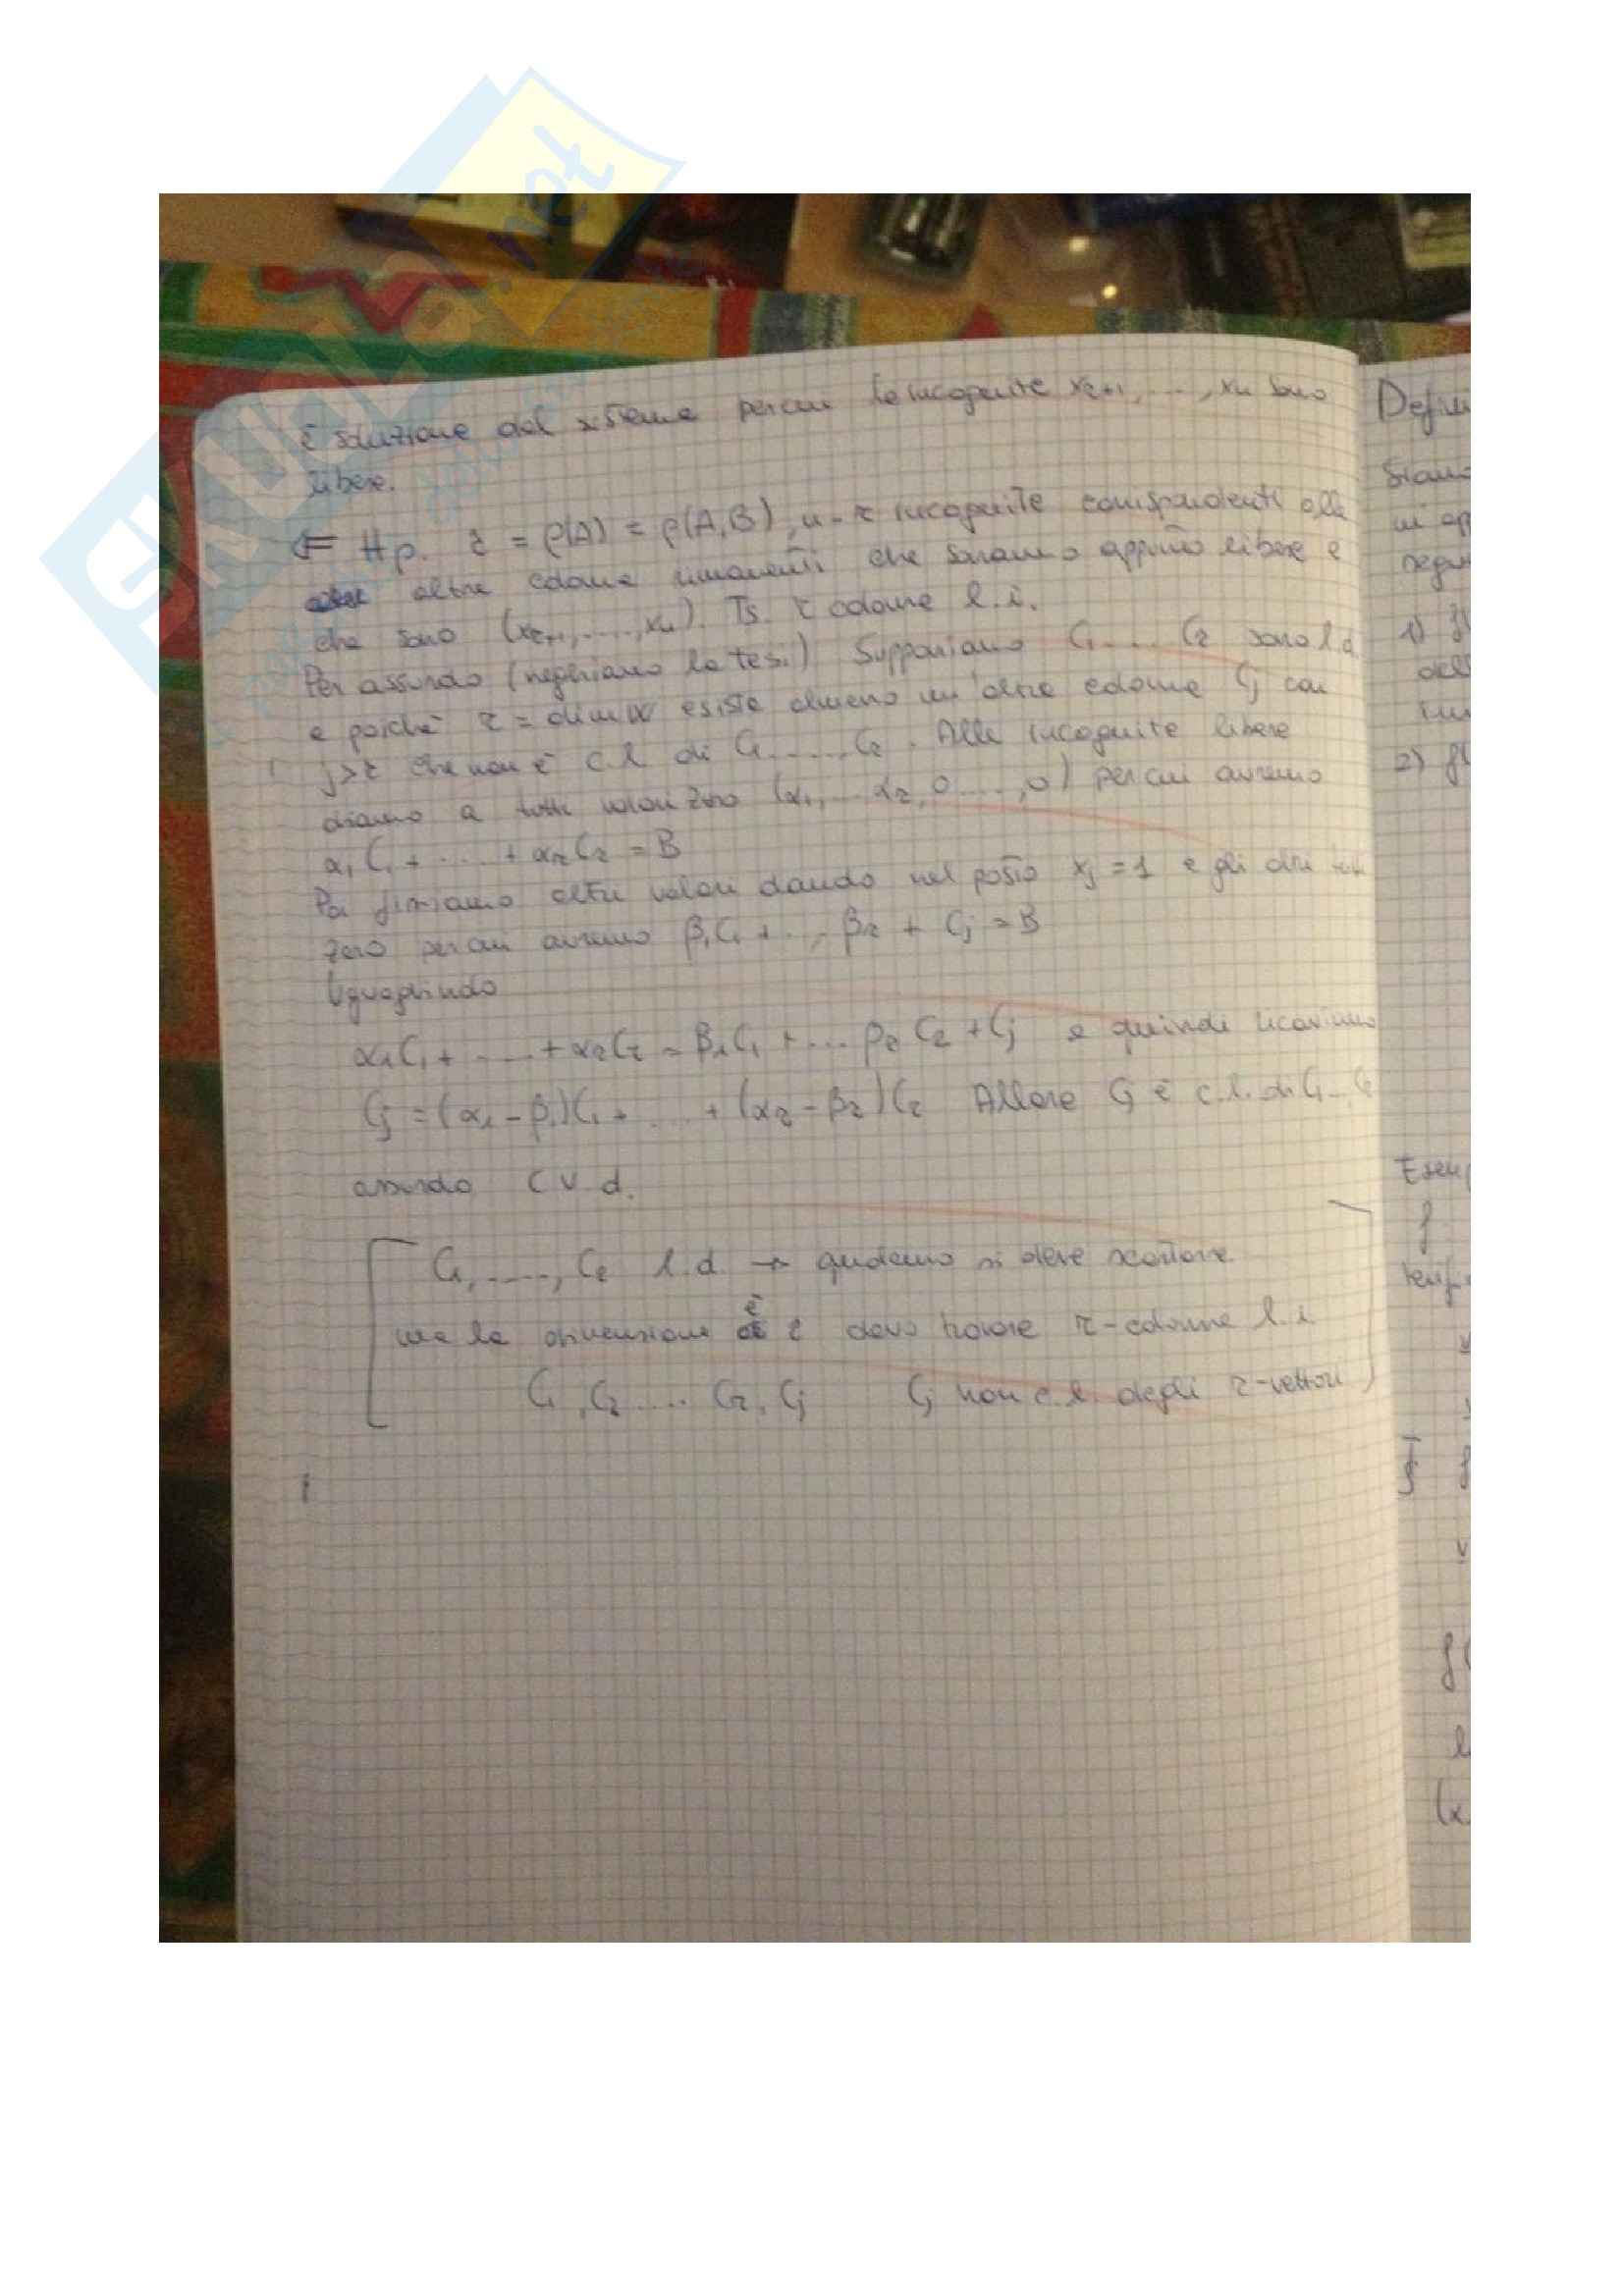 è soluzione del sistema per cui le incognite xr+1, ..., xn sono
libere.
⇐ Hp. r = ρ(A) = ρ(A,B), n-r incognite corrispondenti alle
altre colonne rimanenti che saranno appunto libere e
che sono (xr+1, ...., xn). Ts. r colonne l.i.
Per assurdo (neghiamo la tesi) Supponiamo C1 .... Cr sono l.d
e poiché r = dim W esiste almeno un'altra colonna Cj con
j>r che non è c.l. di C1 ...., Cr. Alle incognite libere
diamo a tutti valori zero (α1, ... αr, 0 ...., 0) per cui avremo
α1 C1 + .... + αr Cr = B
Poi fissiamo altri valori dando nel posto xj = 1 e gli altri
zero per cui avremo β1C1 + ... βr + Cj = B
Uguagliando
α1C1 + .... + αrCr = β1C1 + ... βr Cr + Cj e quindi ricaviamo
Cj = (α1 - β1)C1 + .... + (αr - βr)Cr Allora Cj è c.l. di C1 ... Cr
assurdo C V d.
C1, ....., Cr l.d. → qualcuno si deve scartare
ma la dimensione è r devo trovare r-colonne l.i.
C1, C2 .... Cr, Cj Cj non c.l. degli r-vettori
Defini
Siano
ui ap
segu
1) f(
dell
2) f(
Esemp
f
v
f
v
f(
(x
SKUOLA.net